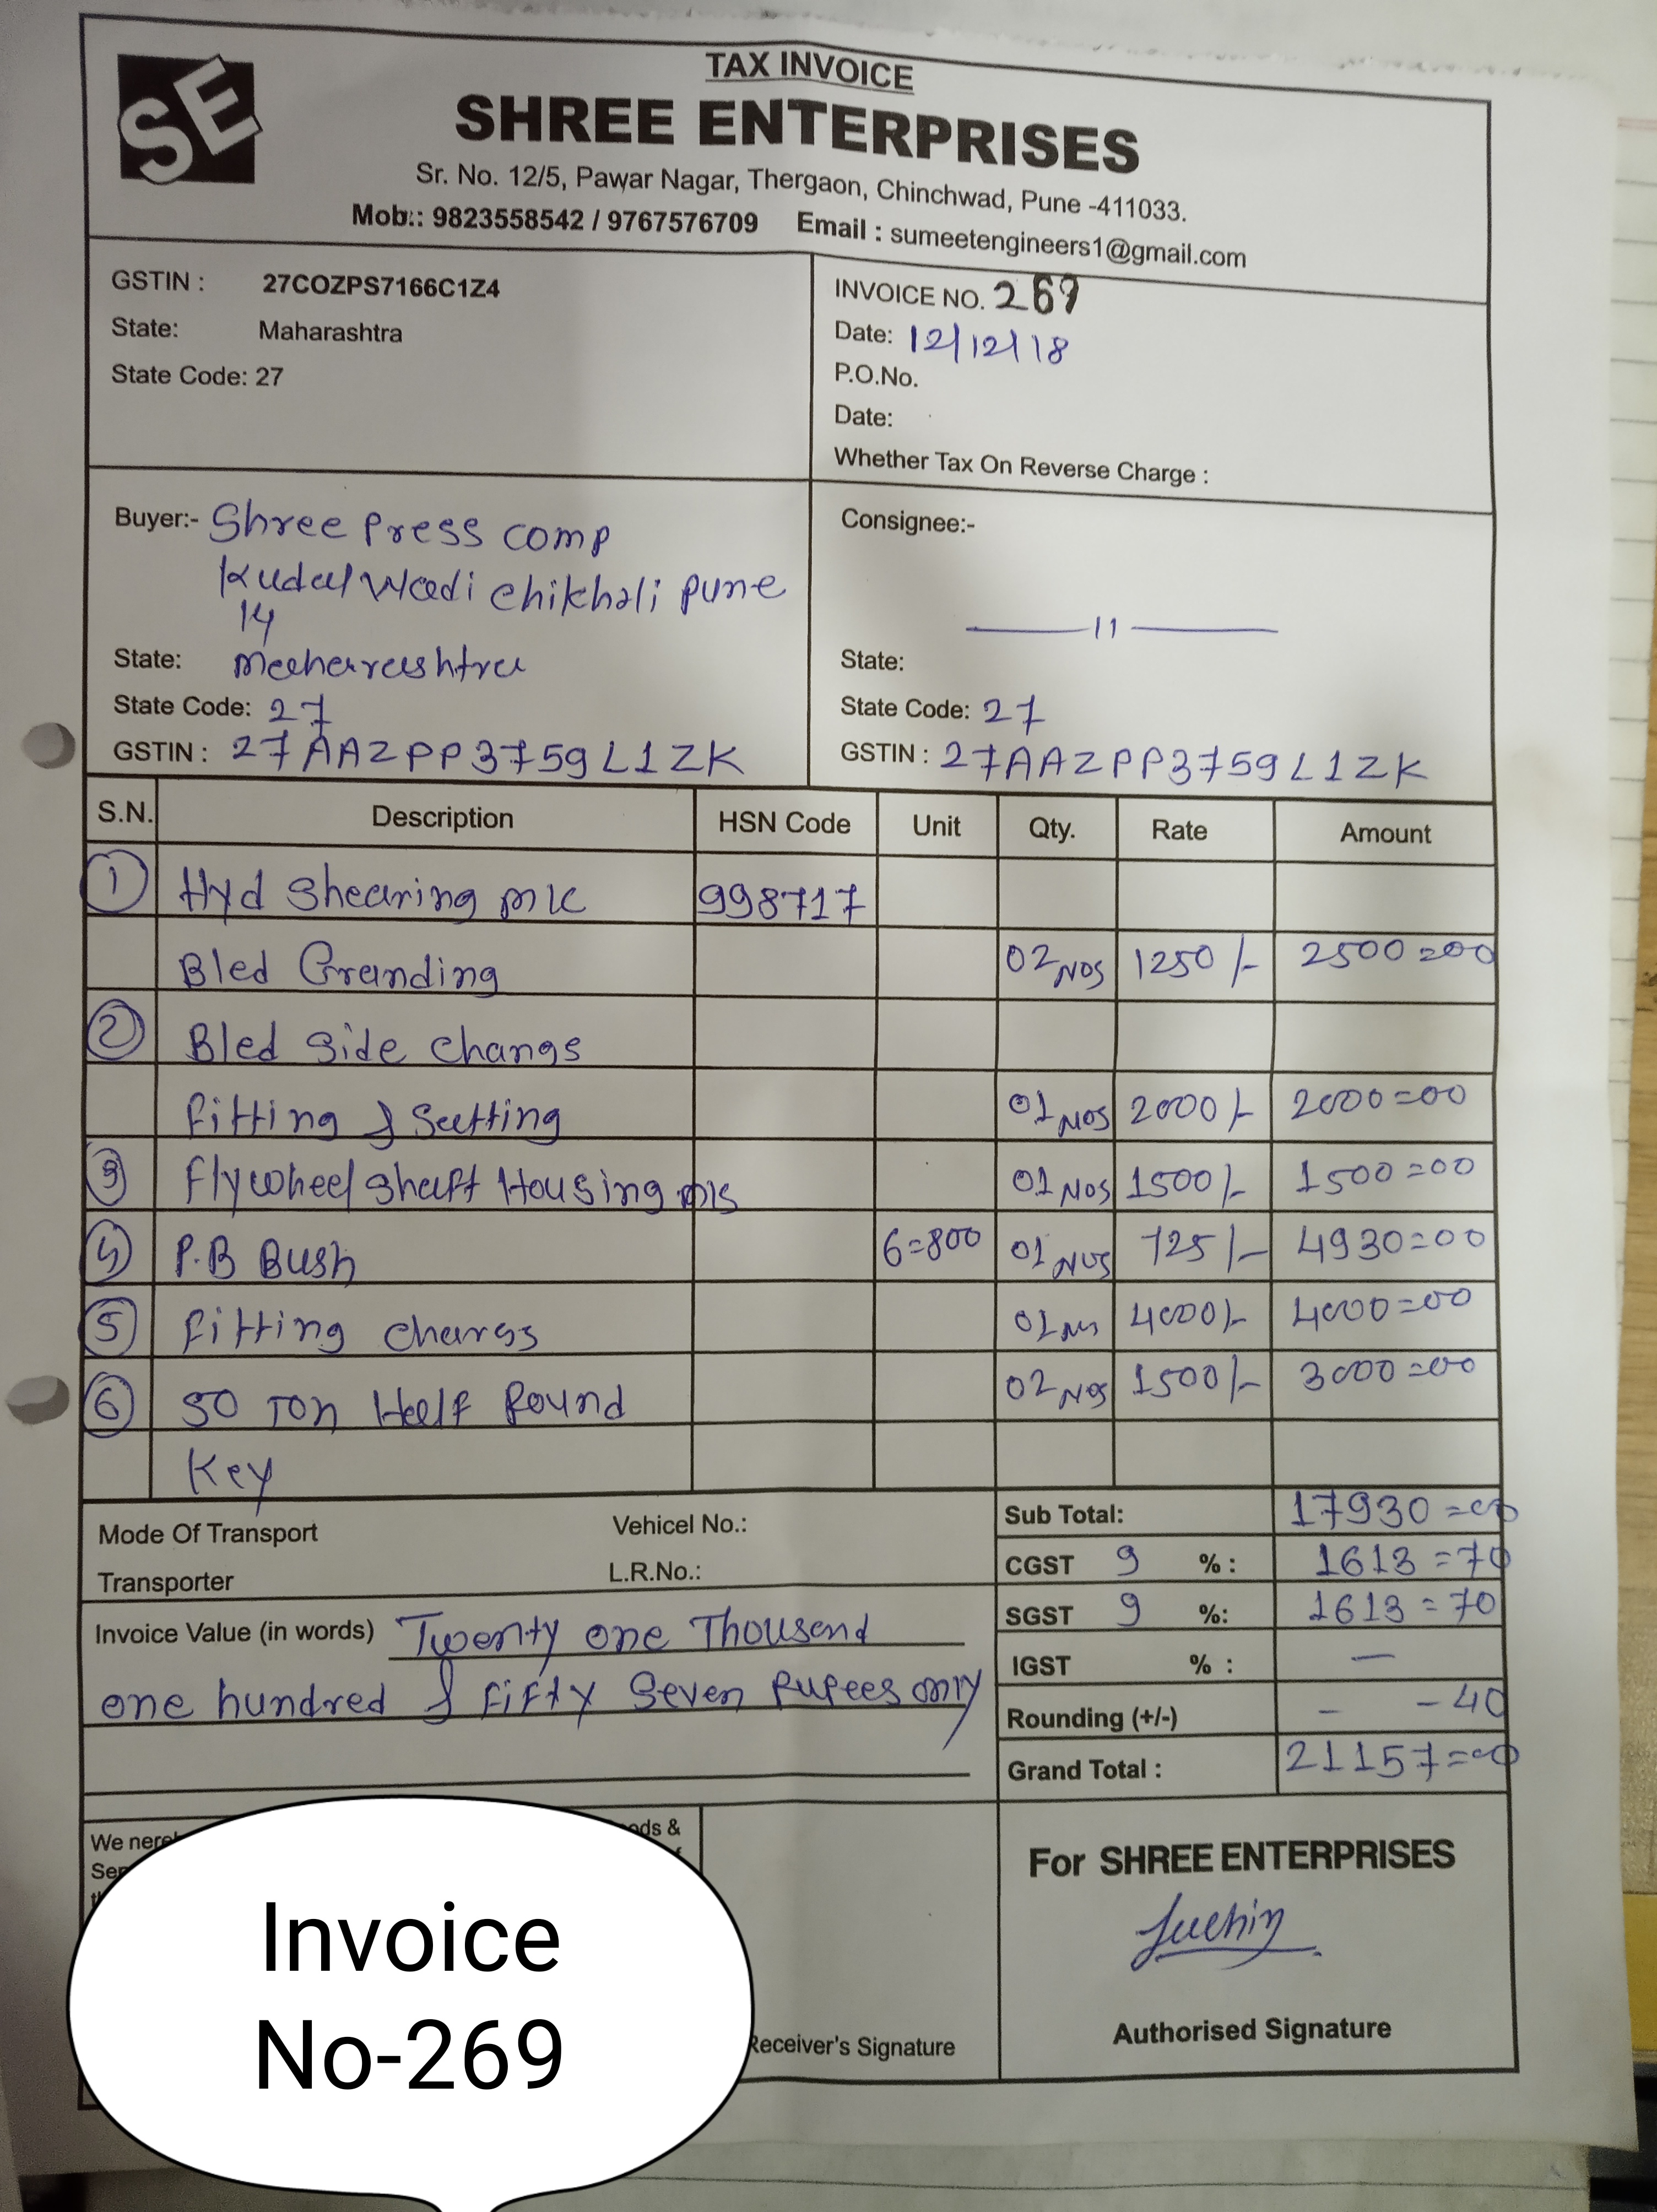 SE
TAX INVOICE
SHREE ENTERPRISES
Sr. No. 12/5, Pawar Nagar, Thergaon, Chinchwad, Pune -411033.
Mob.: 9823558542 / 9767576709 Email : sumeetengineers1@gmail.com
GSTIN : 27COZPS7166C1Z4
State: Maharashtra
State Code: 27
INVOICE NO. 269
Date: 12/12/18
P.O.No.
Date:
Whether Tax On Reverse Charge :
Buyer:- Shree Press comp
Kudal Wadi chikhali pune
14
State: Maharashtra
State Code: 27
GSTIN : 27AAZPP3759L1ZK
Consignee:-
—— 11 ——
State:
State Code: 27
GSTIN : 27AAZPP3759L1ZK
S.N. Description HSN Code Unit Qty. Rate Amount
1 Hyd Shearing m/c 998717
Bled Granding 02 NOS 1250/- 2500=00
2 Bled Side Changs
Fitting & Setting 01 NOS 2000/- 2000=00
3 Flywheel Shaft Housing 01 NOS 1500/- 1500=00
4 P.B Bush 6=800 01 NOS 725/- 4930=00
5 Fitting Chargs 01 NS 4000/- 4000=00
6 50 Ton Half Round 02 NOS 1500/- 3000=00
Key
Mode Of Transport Vehicel No.:
Transporter L.R.No.:
Sub Total: 17930=00
CGST 9 % : 1613=70
SGST 9 %: 1613=70
IGST % : —
Rounding (+/-) - -40
Grand Total : 21157=00
Invoice Value (in words) Twenty one Thousand
one hundred & Fifty Seven Rupees only
We
ods &
For SHREE ENTERPRISES
Receiver's Signature
Authorised Signature
Invoice
No-269